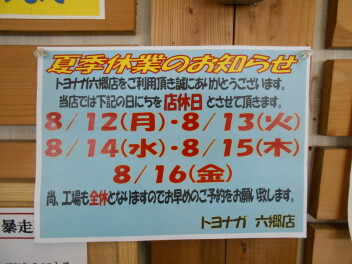 夏季休業のお知らせ
トヨナガ六郷店をご利用頂き誠にありがとうございます。
当店では下記の日にちを店休日とさせて頂きます。
8/12(月)・8/13(火)
8/14(水)・8/15(木)
8/16(金)
尚、工場も全休となりますのでお早めのご予約をお願い致します。
トヨナガ 六郷店
暴走